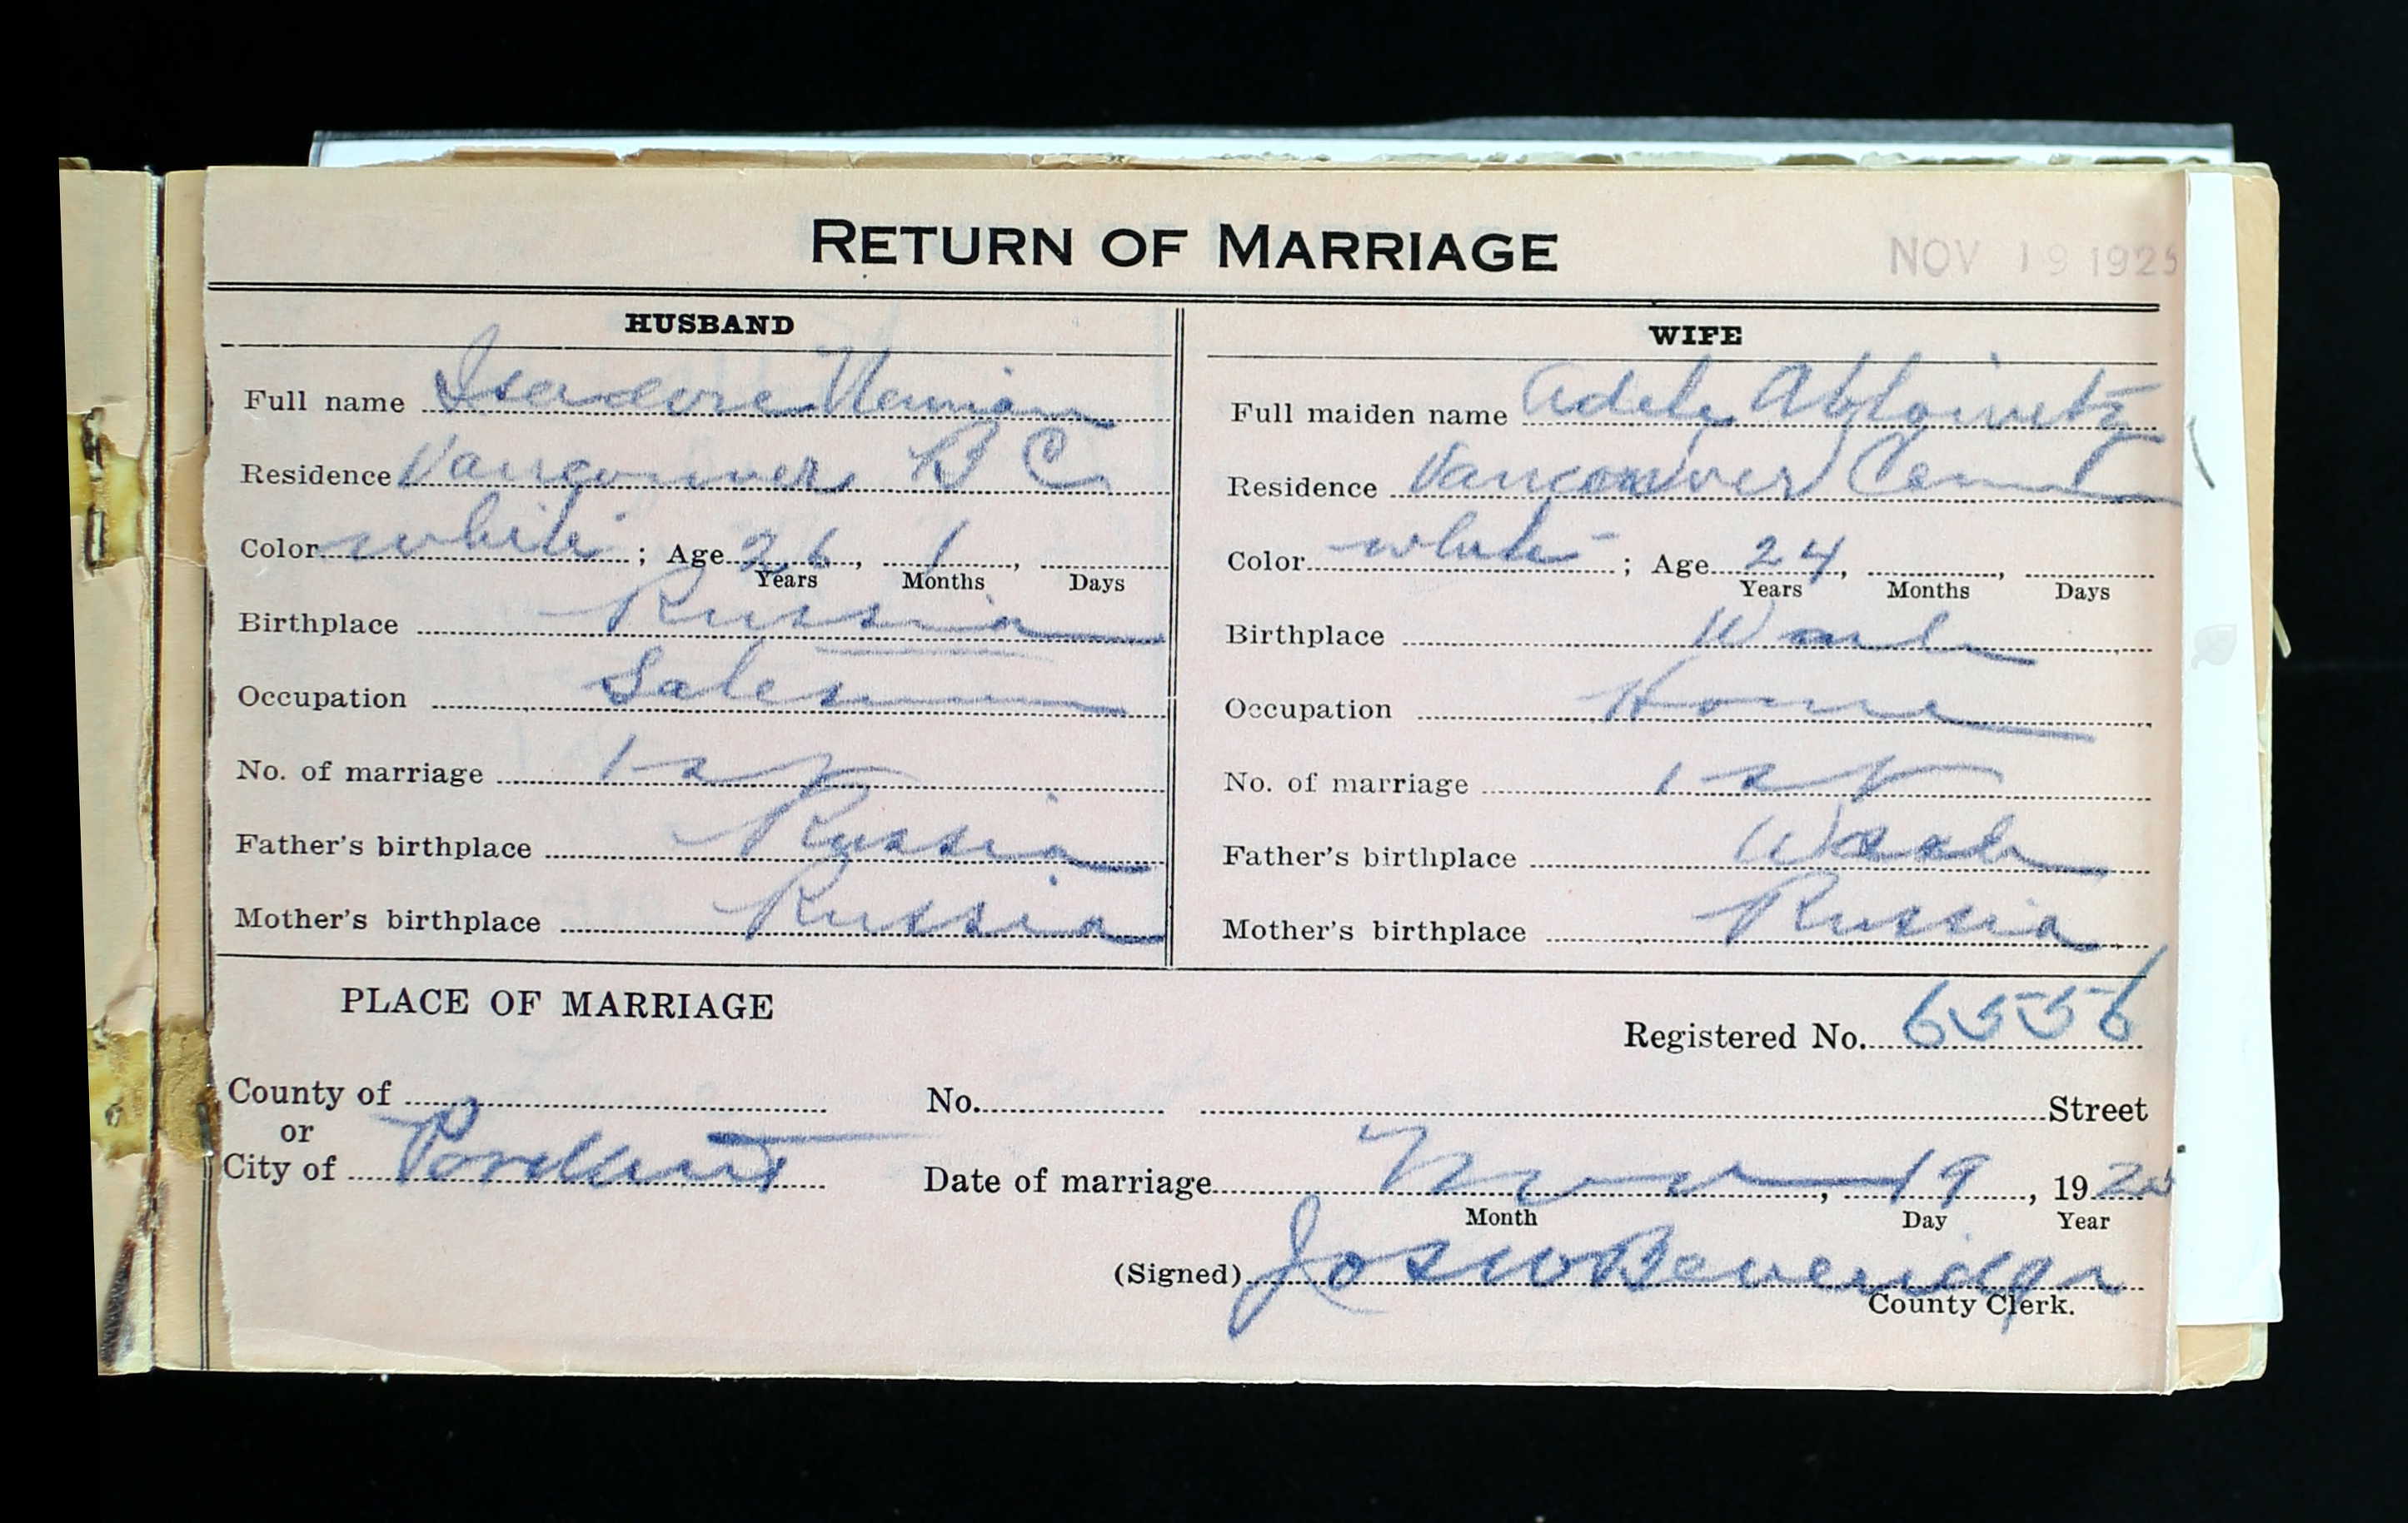 RETURN OF MARRIAGE
NOV 19 1925
HUSBAND
Full name Isadore
Residence Vancouver B C
Color white ; Age 26 Years, 1 Months, Days
Birthplace Russia
Occupation Salesman
No. of marriage 1st
Father's birthplace Russia
Mother's birthplace Russia
WIFE
Full maiden name Adele
Residence Vancouver
Color white ; Age 24 Years, Months, Days
Birthplace Wash
Occupation Home
No. of marriage 1st
Father's birthplace Wash
Mother's birthplace Russia
PLACE OF MARRIAGE
Registered No. 6556
County of
or
City of Portland
No. Street
Date of marriage Nov, 19, 1925
Month Day Year
(Signed) Jos W Beveridge
County Clerk.